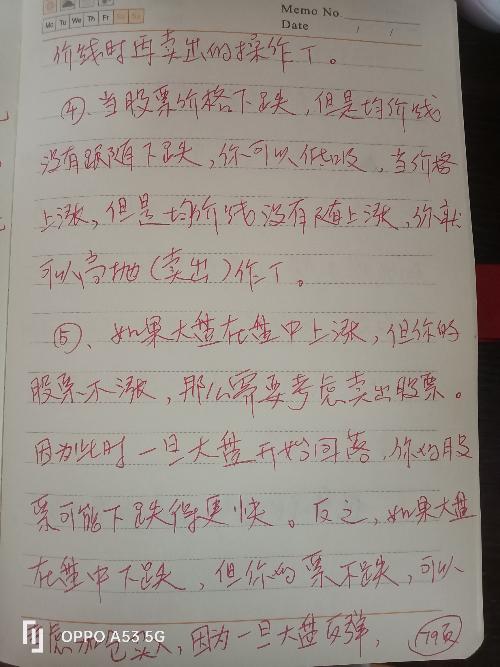 Memo No.
Date / /
Mo Tu We Th Fr Sa Su
价线时再卖出的操作T。
④、当股票价格下跌，但是均价线
没有跟随下跌，你可以低吸，当价格
上涨，但是均价线没有随上涨，你就
可以高抛（卖出）作T。
⑤、如果大盘在盘中上涨，但你的
股票不涨，那么需要考虑卖出股票。
因为此时一旦大盘开始回落，你的股
票可能下跌得更快。反之，如果大盘
在盘中下跌，但你的票不跌，可以
虑加仓买入，因为一旦大盘反弹，
79页
OPPO A53 5G